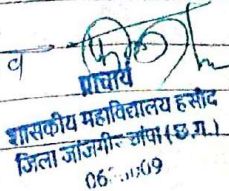 व
प्राचार्य
शासकीय महाविद्यालय हसौद
जिला जांजगीर-चांपा (छ.ग.)